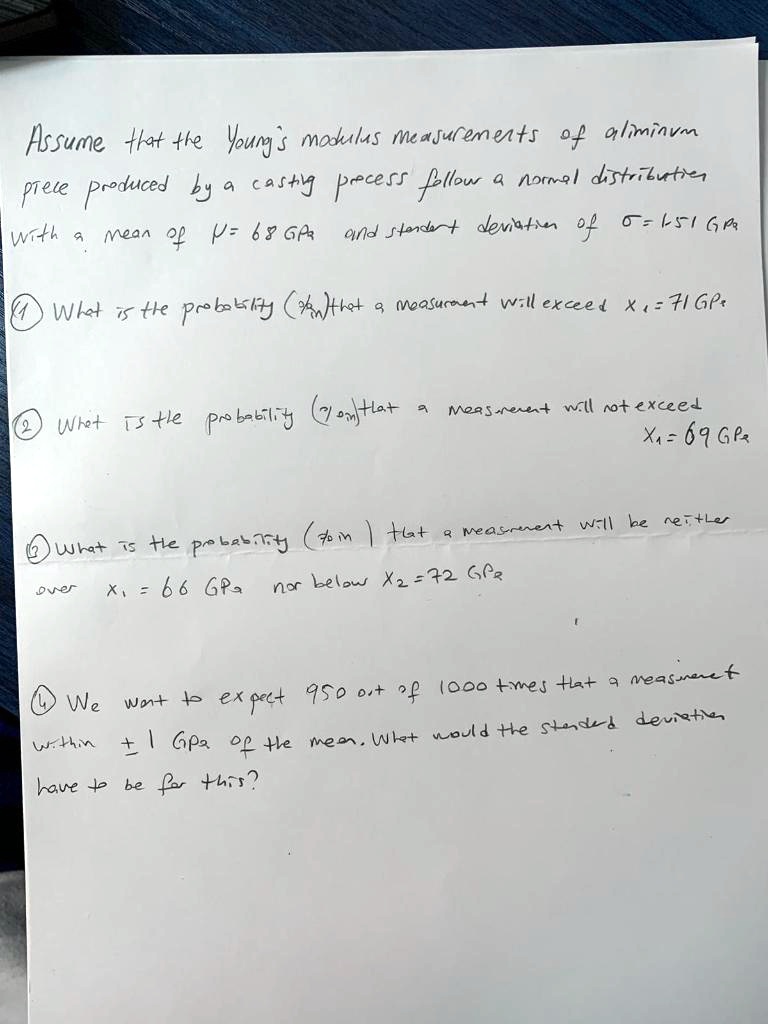 Assume that the Young's modulus measurements of aliminum
piece produced by a casting process follow a normal distribution
with a mean of μ = 68 GPa and standart deviation of σ = 1.51 GPa
① What is the probability (% in) that a measurement will exceed x₁ = 71 GPa
② What is the probability (% in) that a measurement will not exceed
X₁ = 69 GPa
③ What is the probability (% in ) that a measurement will be neither
over x₁ = 66 GPa nor below X₂ = 72 GPa
④ We want to expect 950 out of 1000 times that a measurement
within ± 1 GPa of the mean. What would the standard deviation
have to be for this?